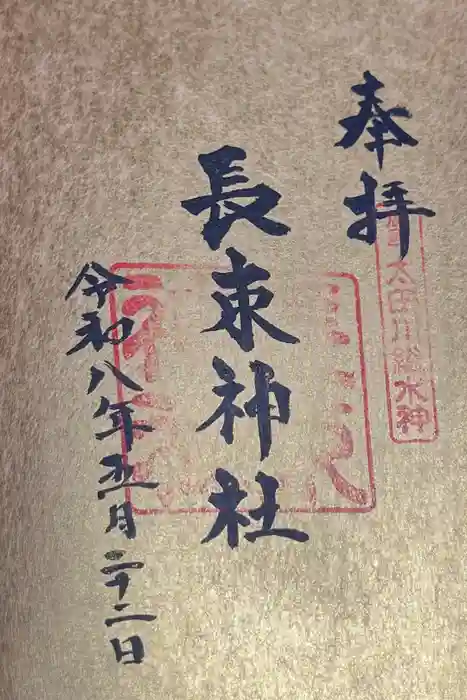 奉拝
太田川総水神
長束神社
令和八年五月二十二日